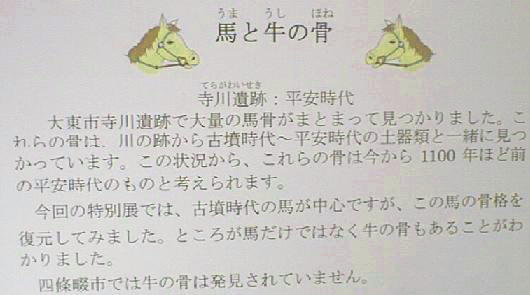 うま うし ほね
馬と牛の骨
てらがわいせき
寺川遺跡：平安時代
大東市寺川遺跡で大量の馬骨がまとまって見つかりました。こ
れらの骨は、川の跡から古墳時代～平安時代の土器類と一緒に見つ
かっています。この状況から、これらの骨は今から 1100 年ほど前
の平安時代のものと考えられます。
今回の特別展では、古墳時代の馬が中心ですが、この馬の骨格を
復元してみました。ところが馬だけではなく牛の骨もあることがわ
かりました。
四條畷市では牛の骨は発見されていません。